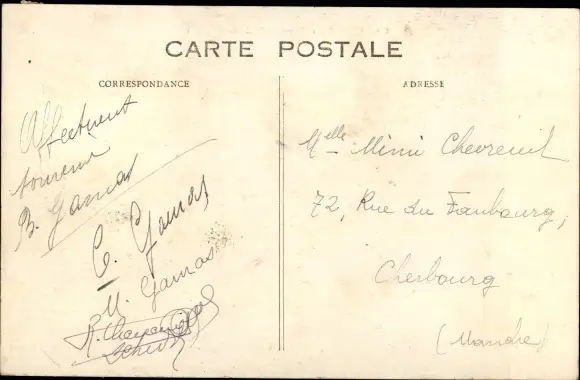 CARTE POSTALE
CORRESPONDANCE
ADRESSE
Affectueux
B. Gamas
G. Gamas
M. Gamas
Melle Mimi Chevreuil
72, Rue du Faubourg,
Cherbourg
(Manche)